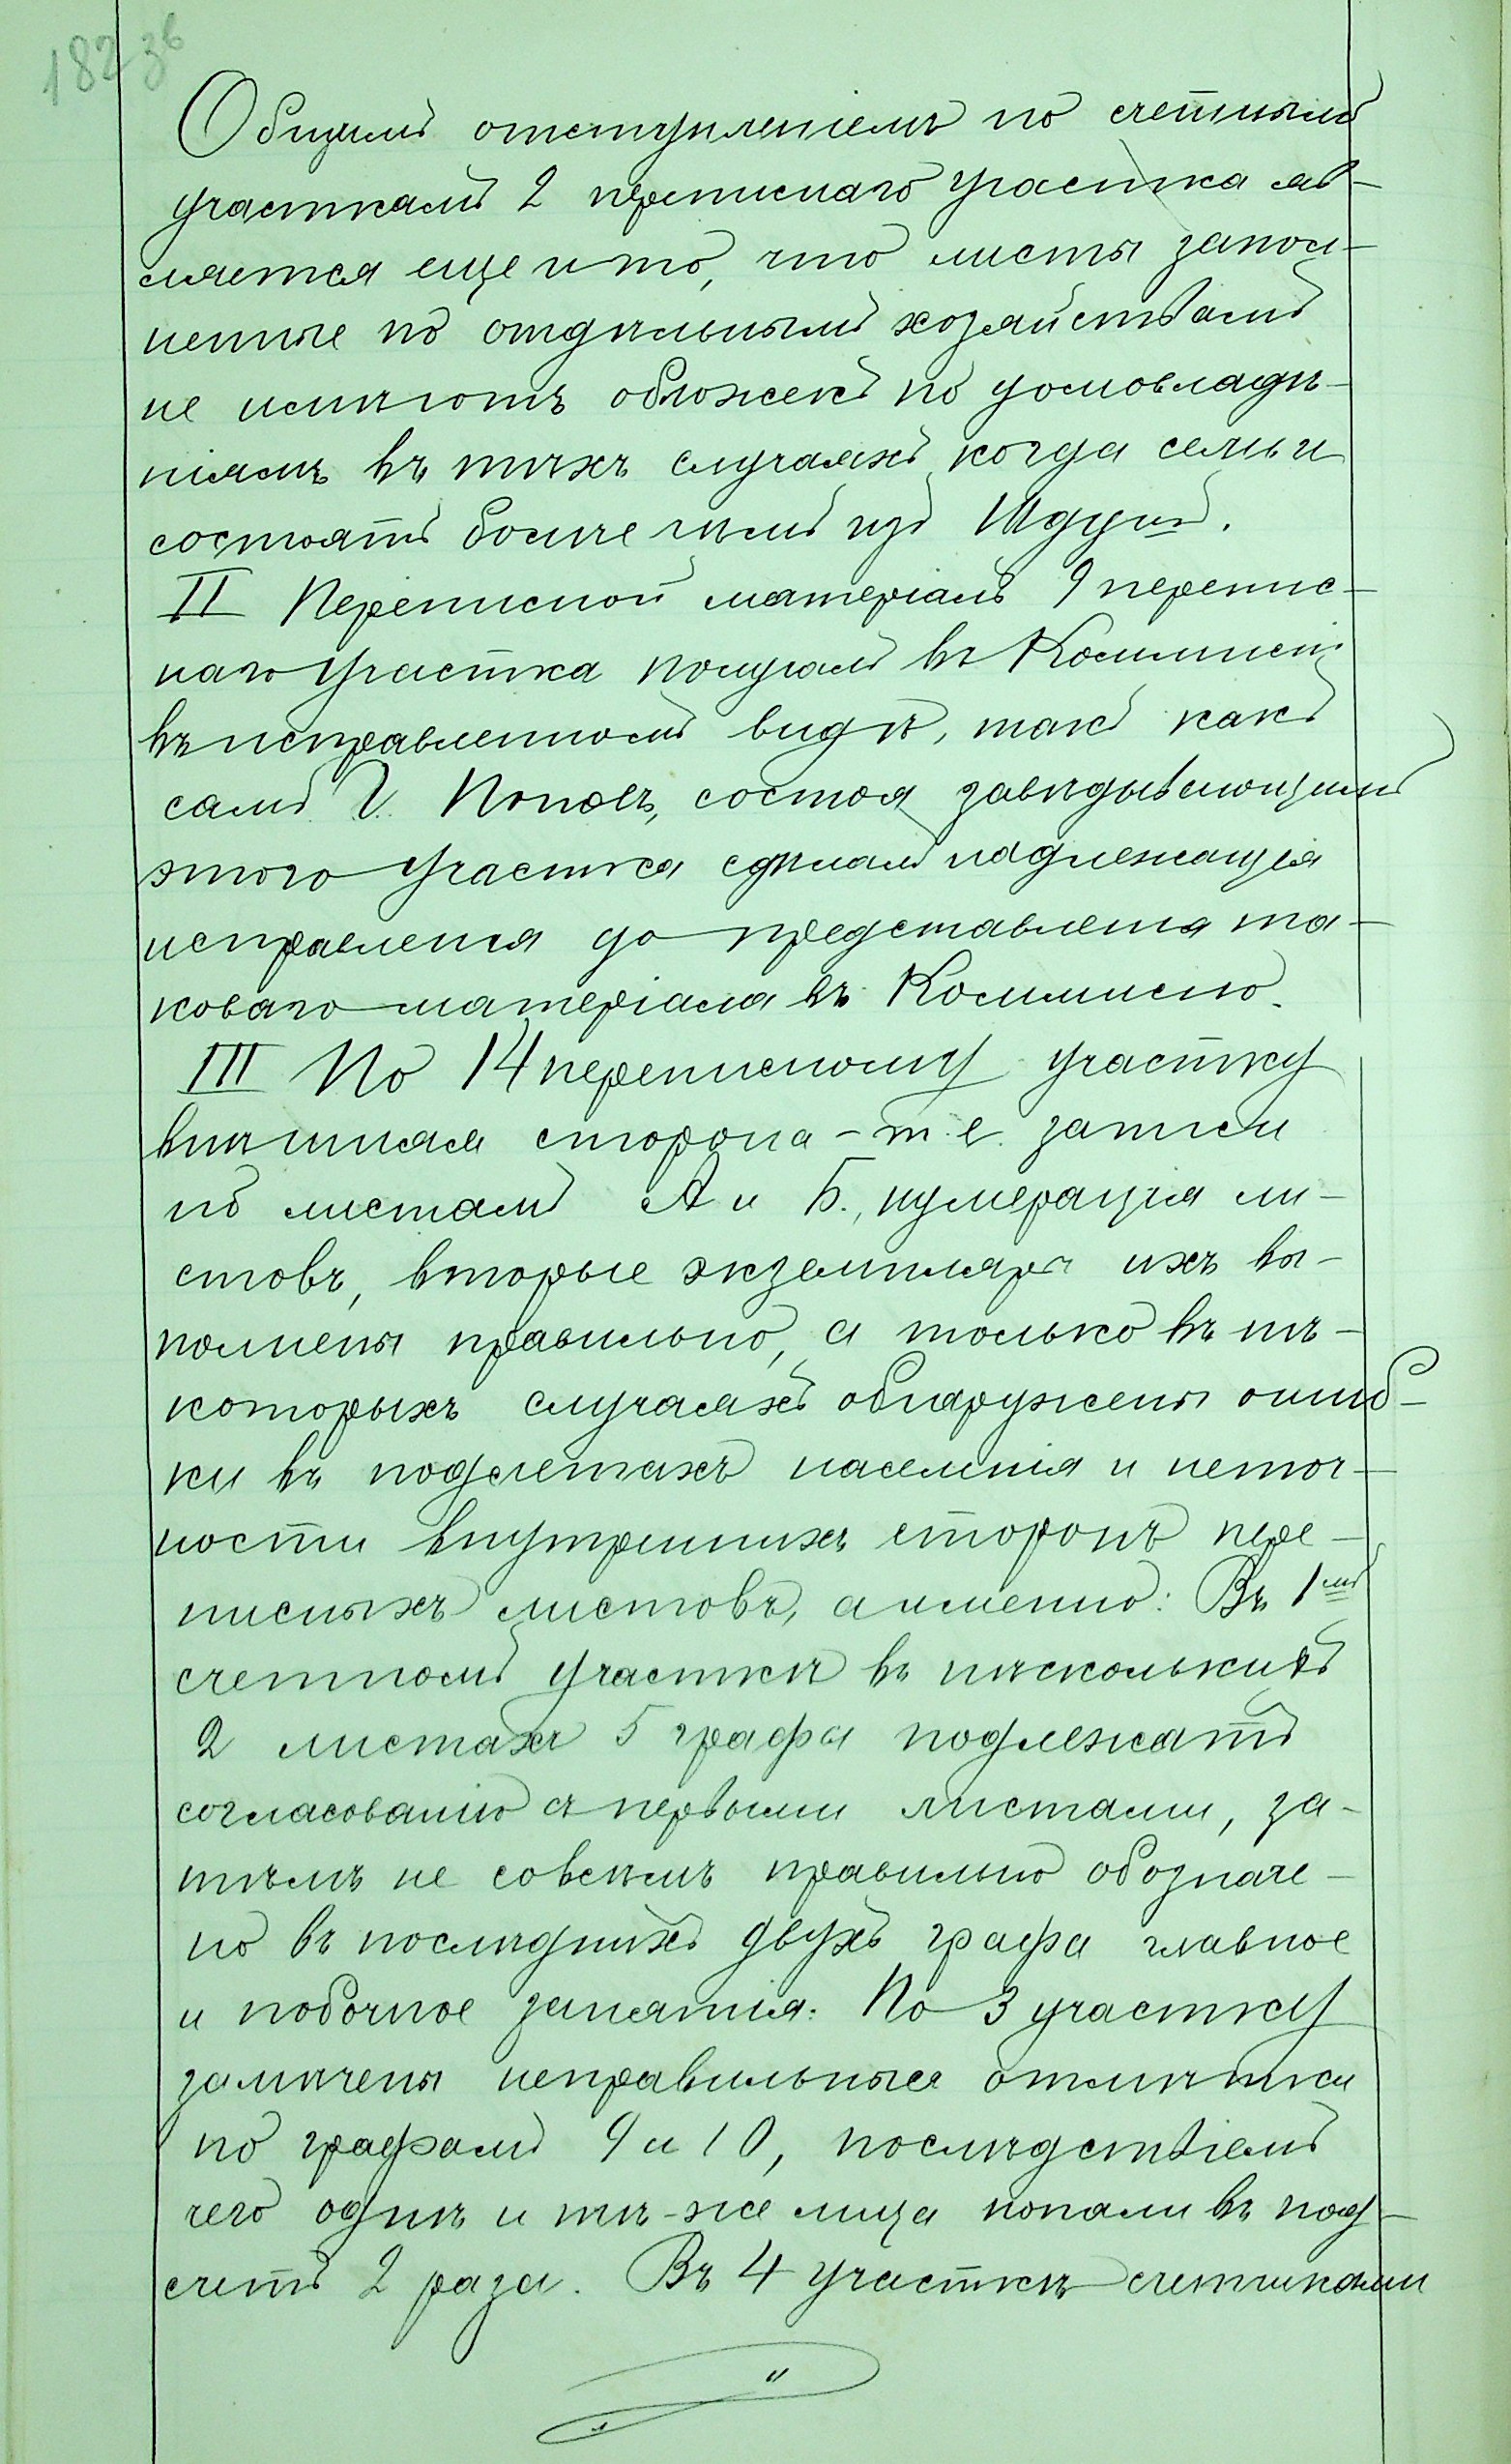 182 зв
Общимъ отступленіемъ по счетнымъ
участкамъ 2 переписнаго участка яв-
ляется еще и то, что листы запол-
ненные по отдѣльнымъ хозяйствамъ
не имѣютъ обложекъ по домовладѣ-
ніямъ въ тѣхъ случаяхъ когда семьи
состоятъ болѣе чѣмъ изъ 11 душъ.
II Переписной матеріалъ 9 перепис-
наго участка получалъ въ Коммисіи
въ исправленномъ видѣ, такъ какъ
самъ Г. Поповъ, состоя завѣдывающимъ
этого участка сдѣлалъ надлежащія
исправленія до представленія та-
коваго матеріала въ Коммисію.
III По 14 переписному участку
внѣшняя сторона - т. е. записи
по листамъ А и Б., нумерація ли-
стовъ, вторые экземпляры ихъ вы-
полнены правильно, а только въ нѣ-
которыхъ случаяхъ обнаружены ошиб-
ки въ подсчетахъ населенія и неточ-
ности внутреннихъ сторонъ пере-
писныхъ листовъ, а именно: Въ 1мъ
счетномъ участкѣ въ нѣсколькихъ
2 листахъ 5 графы подлежатъ
согласованію съ первыми листами, за-
тѣмъ не совсѣмъ правильно обозначе-
но въ послѣднихъ двухъ графа главное
и побочное занятія. По 3 участку
замѣчены неправильныя отмѣтки
по графамъ 9 и 10, послѣдствіемъ
чего однѣ и тѣ-же лица попали въ под-
счетъ 2 раза. Въ 4 участкѣ счетчиками